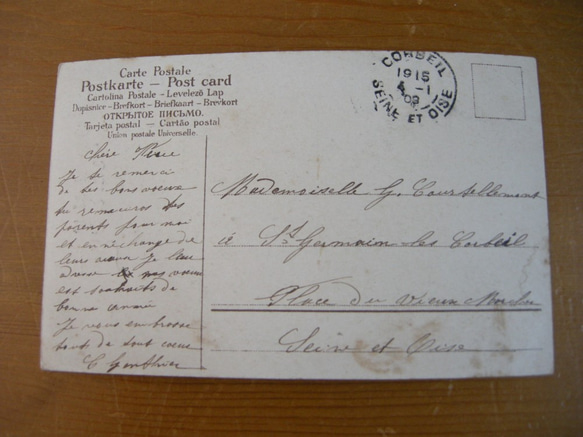 Carte Postale
Postkarte — Post card
Cartolina Postale - Levelező Lap
Dopisnice - Brefkort - Briefkaart - Brevkort
ОТКРЫТОЕ ПИСЬМО.
Tarjeta postal — Cartão postal
Union postale Universelle.
CORBEIL
1915
4 -1
09
SEINE ET OISE
chère
Je te remercie
de tes bons voeux
tu remercieras tes
parents pour moi
et en échange de
leurs voeux je leur
adresse nos voeux
et souhaits de
bonne année
Je vous embrasse
tous de tout coeur
Mademoiselle G. Courtellemont
à St Germain-les Corbeil
Place du Vieux Marché
Seine et Oise